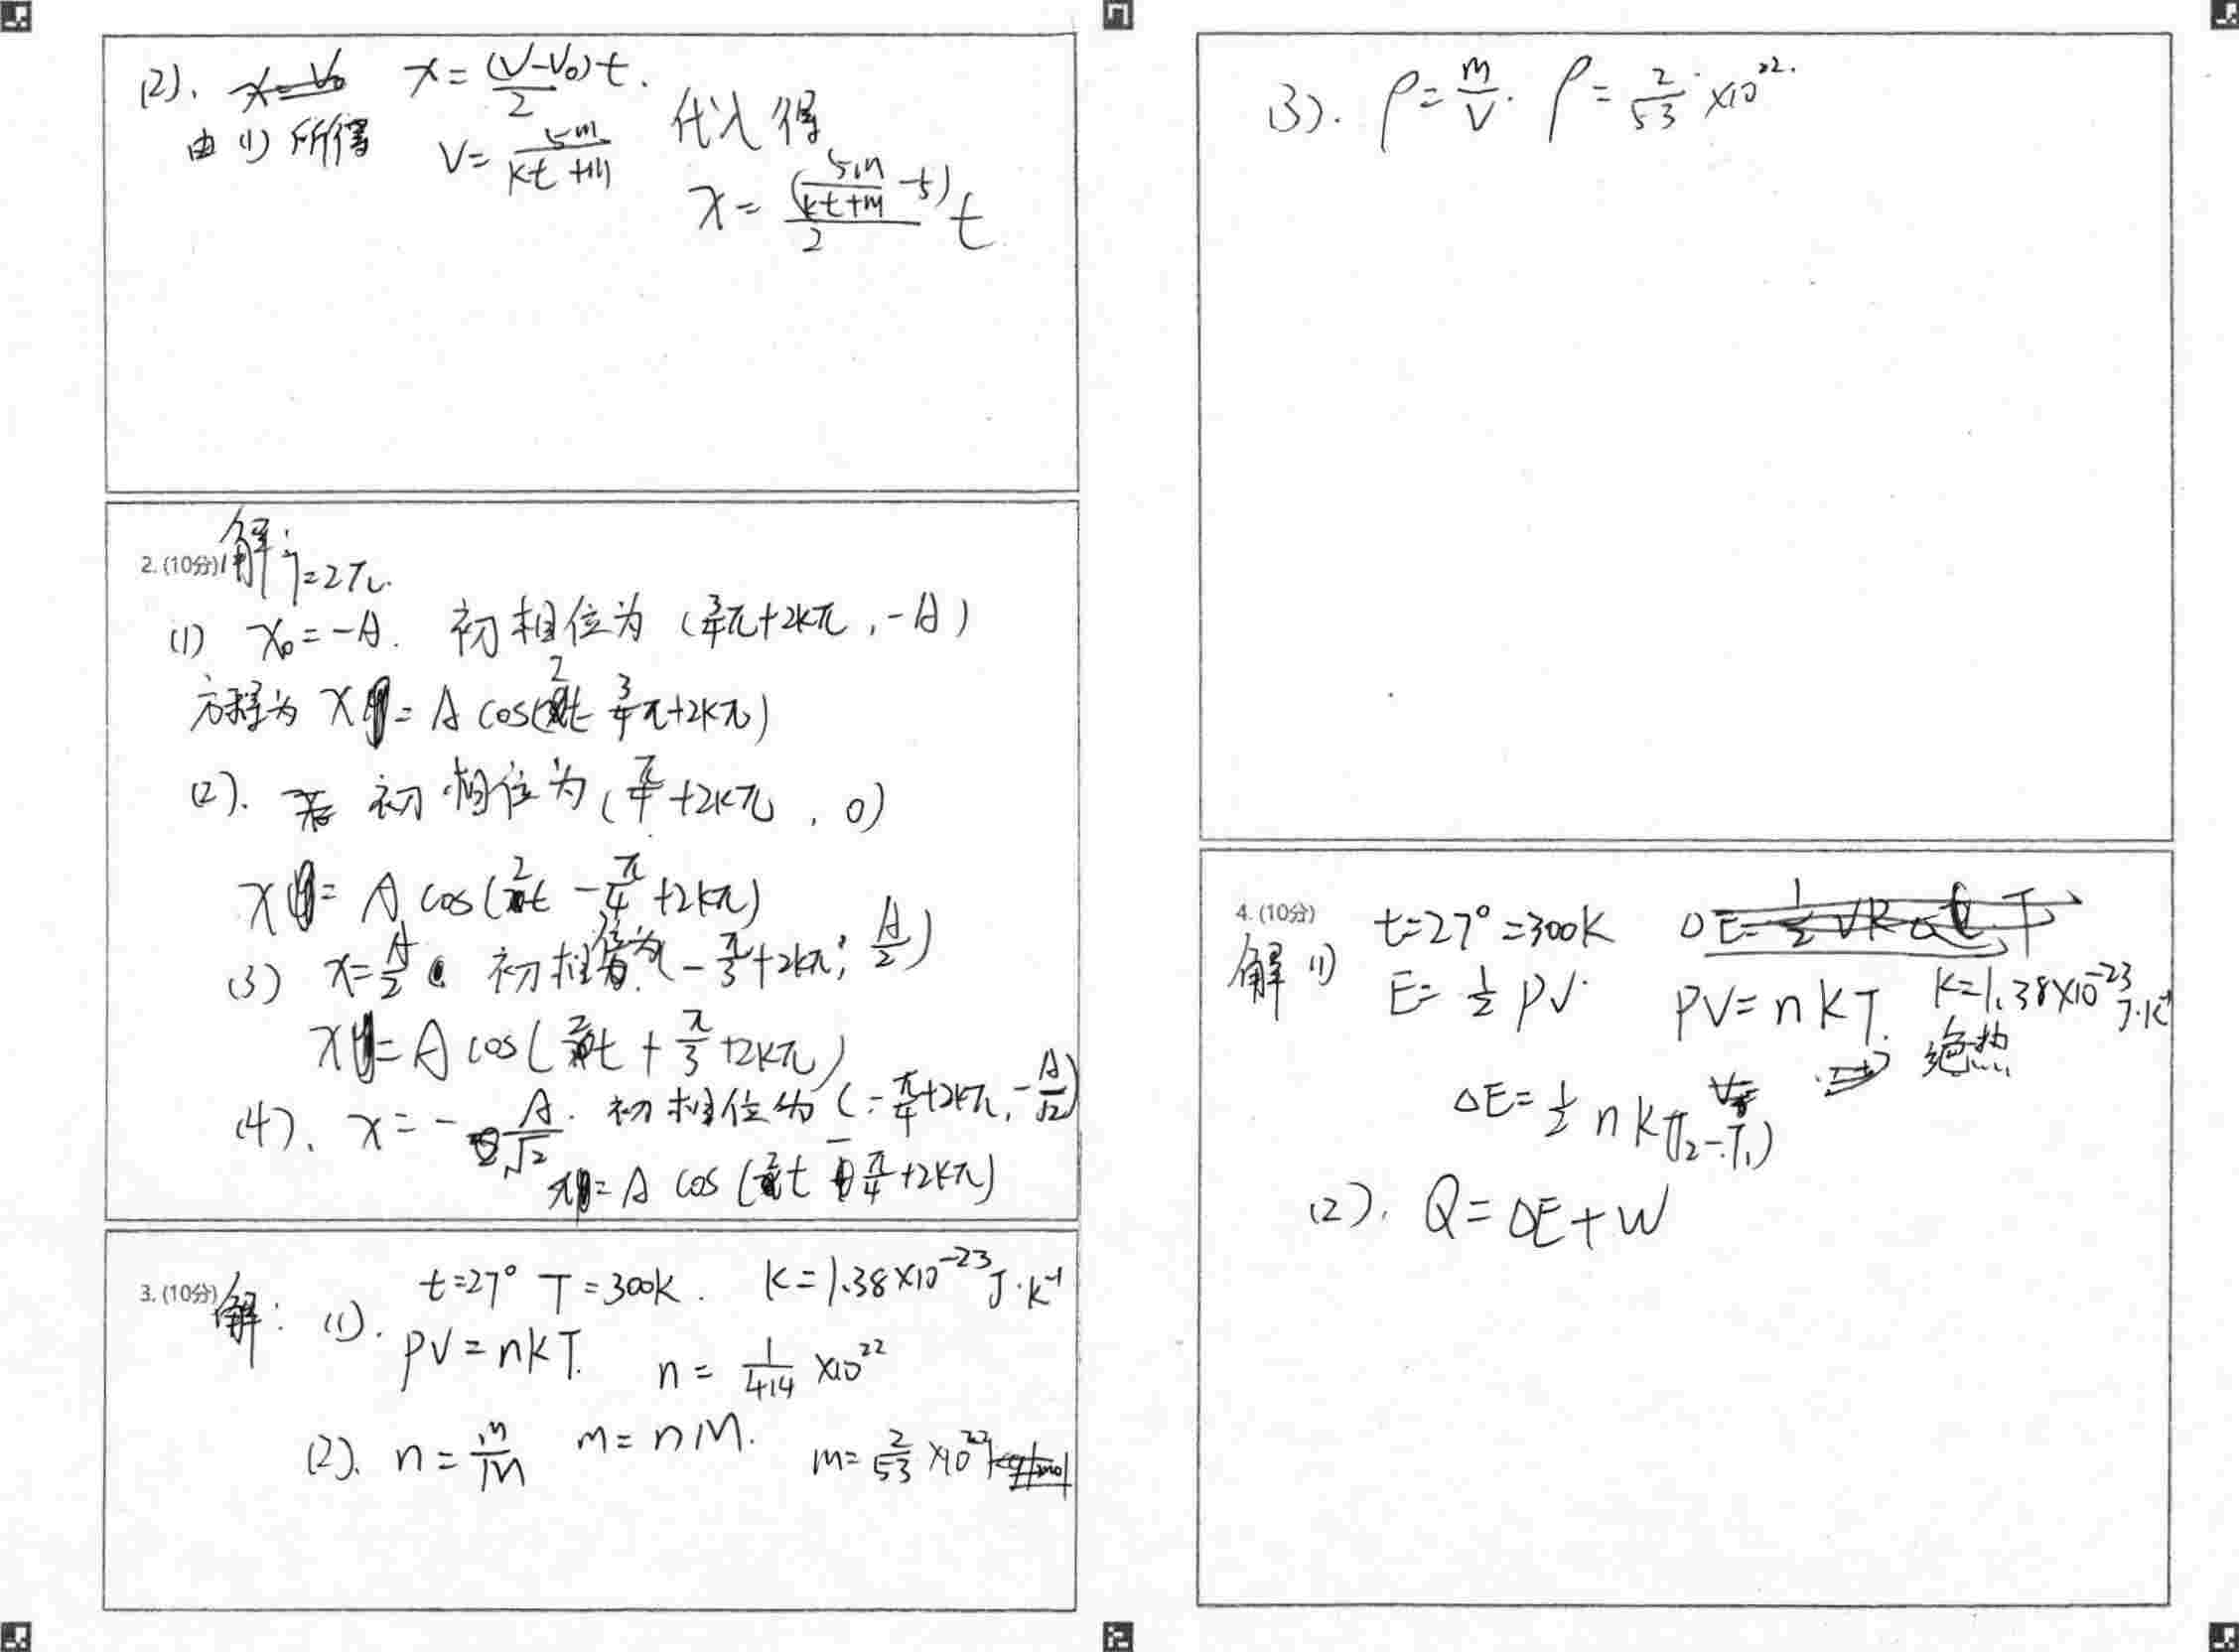 (2). x = (V-V₀)/2 t.
由(1)所得 V = 5m/(kt+m) 代入得
x = (5m/(kt+m) - 5)/2 t
2. (10分) 解: T=2π.
(1) x₀ = -A. 初相位为 (3/4π+2kπ, -A)
方程为 x = A cos( t 3/4π+2kπ)
(2). 若 初相位为 (π/4+2kπ, 0)
x = A cos( t - π/4 +2kπ)
(3) x = A/2 初相位为 (-π/3+2kπ, A/2)
x = A cos( t + π/3 +2kπ)
(4). x = - A/√2. 初相位为 (-π/4+2kπ, -A/√2)
x = A cos( t - π/4 +2kπ)
3. (10分) 解: (1). t=27° T=300K. K=1.38×10⁻²³ J·K⁻¹
PV = nKT. n = 1/414 ×10²²
(2). n = m/M m = nM. m = 2/53 ×10²²
(3). ρ = m/V. ρ = 2/53 ×10²².
4. (10分) t=27°=300K
解 (1) E = 1/2 PV. PV = nKT. K=1.38×10⁻²³ J·K⁻¹
绝热
ΔE = 1/2 nK(T₂-T₁)
(2). Q = ΔE + W